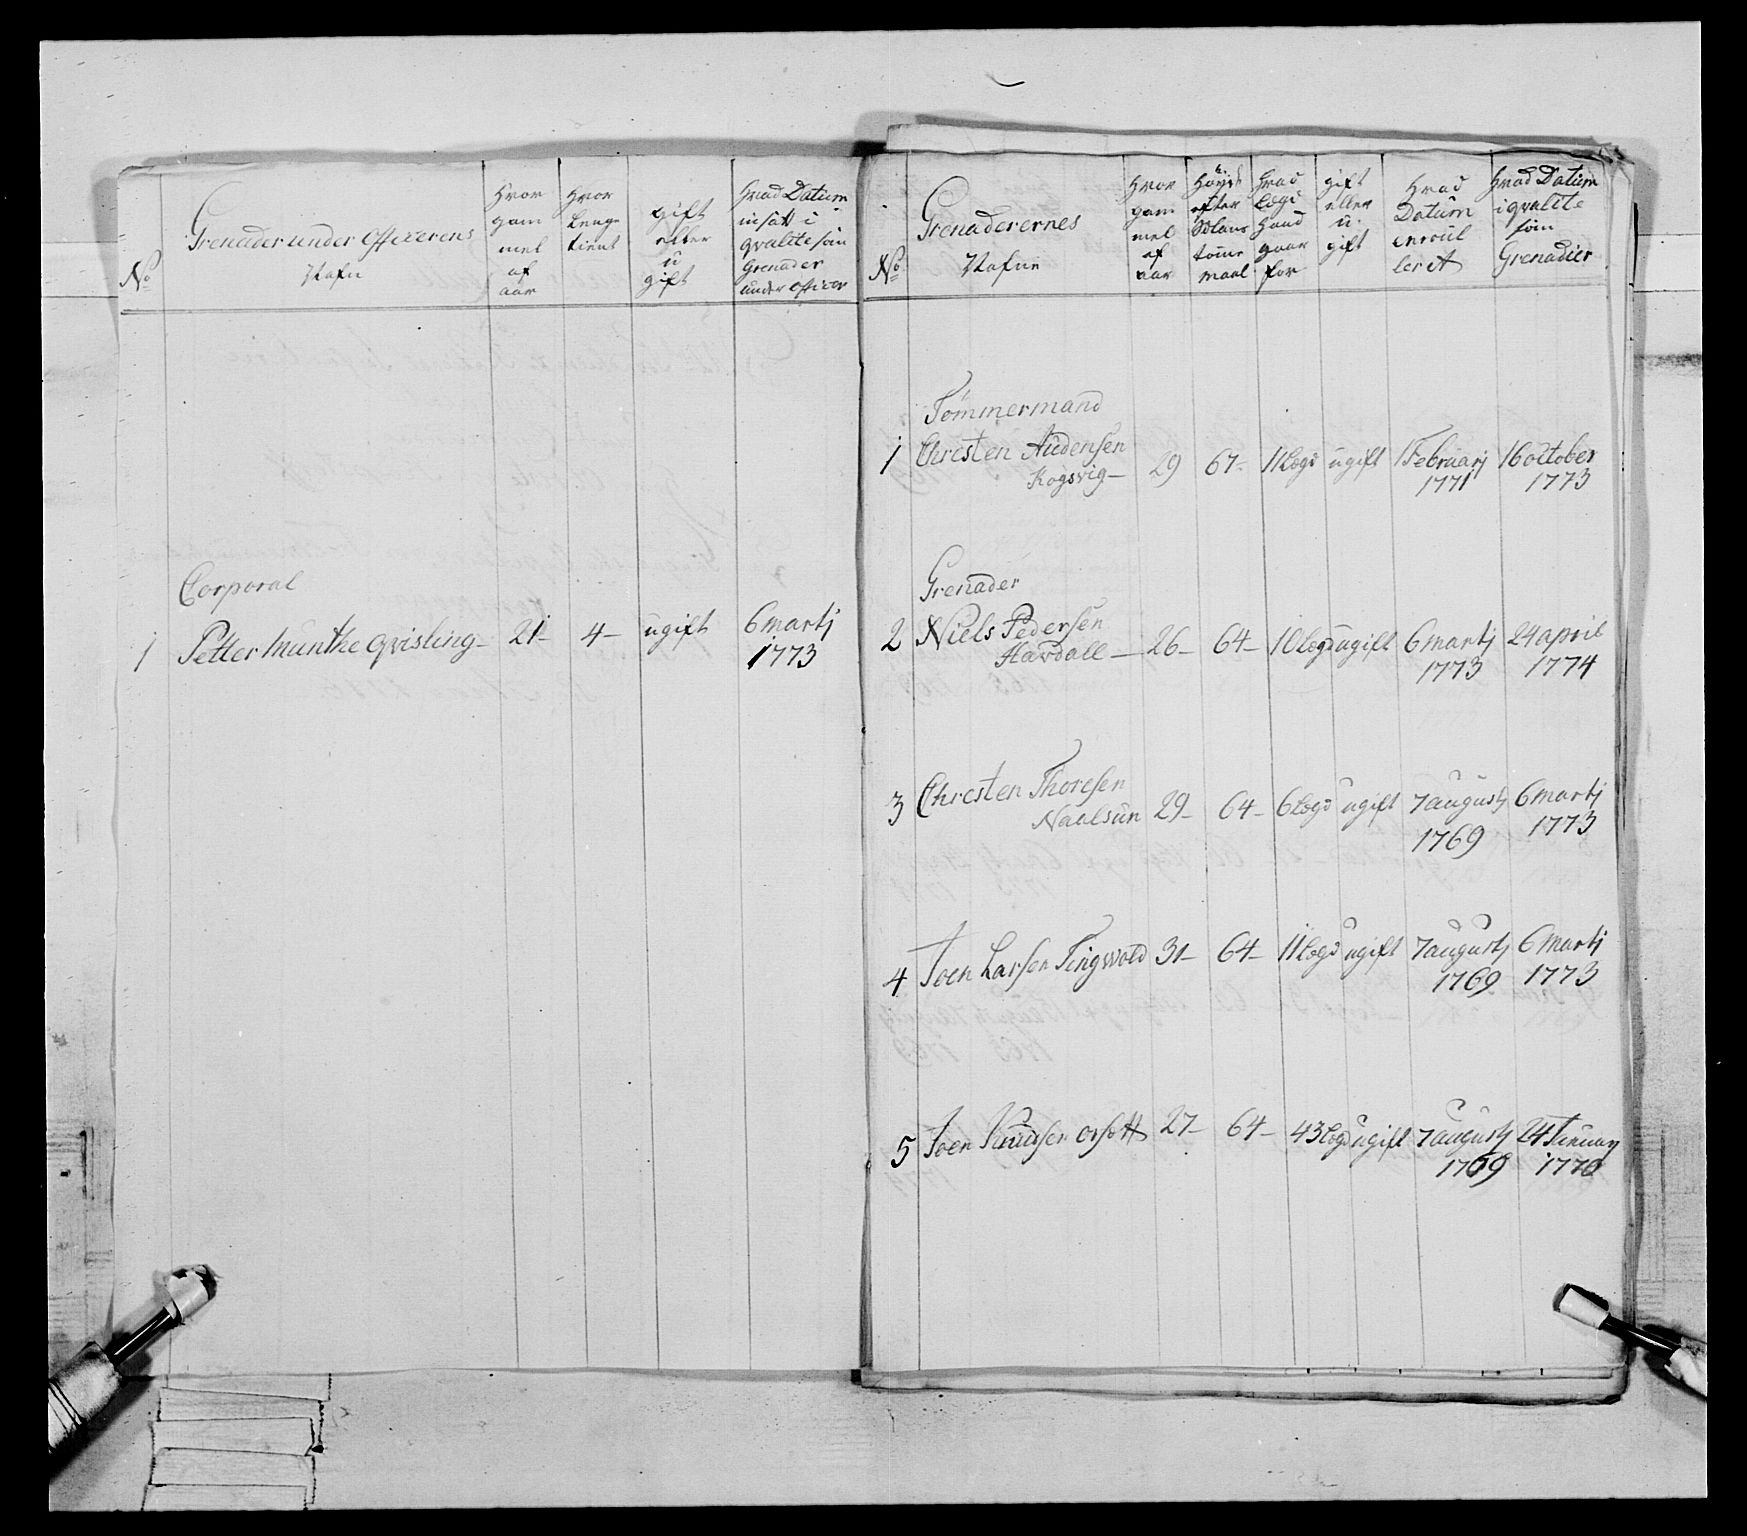 No
Grenader under officerens
Nafn
hvor
gam
mel
af
aar
hvor
lenge
tient
gift
eller
u
gift
hvad Datum
insatt i
qvalite som
Grenader
under officer
Corporal
1 Petter Munthe Qvisling - 21 - 4 - ugift 6 martj
1773
No
Grenaderernes
Nafne
hvor
gam
mel
af
aar
høyde
efter
tomme
maal
hvad
Legd
hand
gaar
for
gift
eller
u
gift
hvad
Datum
enroul
lert
hvad Datum
i qvalite
som
Grenadier
Tömmermand
1 Christen Audensen 29 67 - 11 Legd ugift 1 Februarj 16 october
Kogsvig - 1771 1773
Grenader
2 Niels Pedersen
Havdall - 26 - 64 - 10 Legd ugift 6 martj 24 april
1773 1774
3 Christen Thoresen
Naalsun 29 - 64 - 6 Legd ugift 7 augustj 6 martj
1769 1773
4 Joen Larsen Tingwold 31 - 64 - 11 Legd ugift 7 augustj 6 martj
1769 1773
5 Joen Knudsen orsett 27 - 64 - 43 Legd ugift 7 augustj 24 Januarj
1769 1770